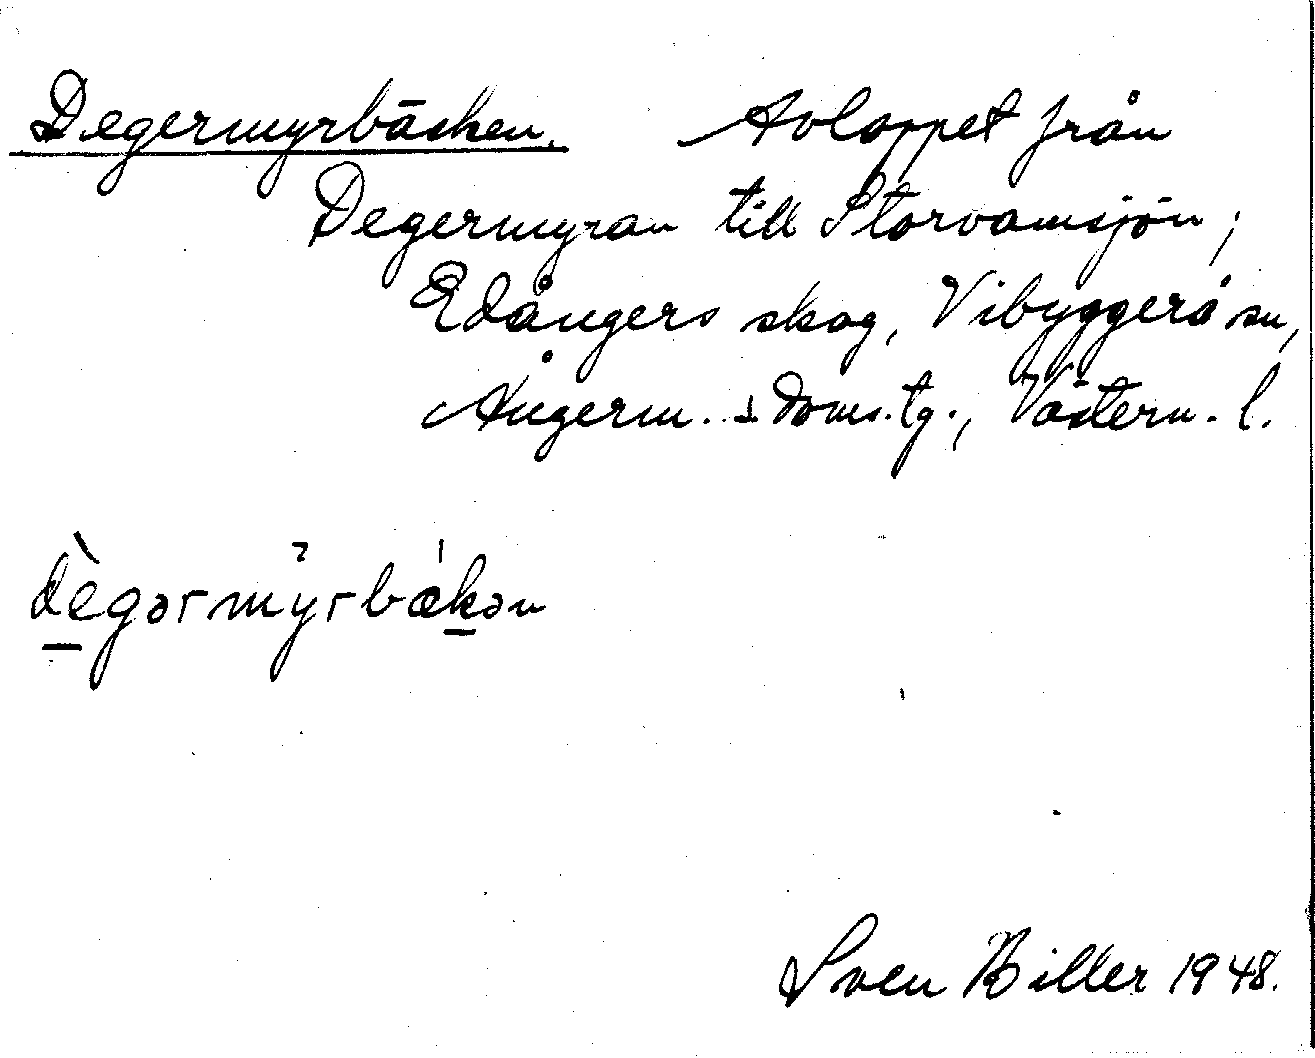 Degermyrbäcken. Avloppet från
Degermyran till Storvamsjön;
Edångers skog, Vibyggerå sn,
Ångerm. s. doms. tg., Västern. l.
dègərmyrbækən
Sven Biller 1948.